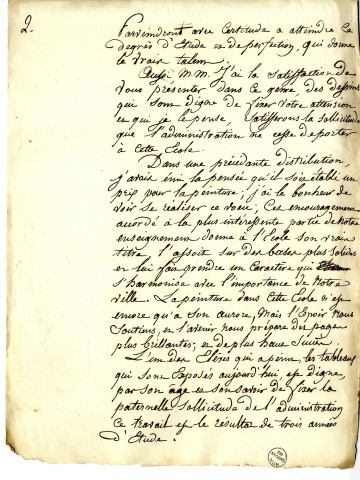 2.
Parviendront avec Certitude a atteindre Ce
degrés d'Etude et de perfection, qui donne
le vrai talent.
Aussi M.M. J'ai la Satisfaction de
vous présenter dans ce genre des dessins
qui sont digne de fixer votre attention
et qui je le pense, satisferons la sollicitude
que l'administration ne cesse de porter
à cette Ecole.
Dans une précédante distribution,
j'avais émi la pensée qu'il soit établi un
prix pour la peinture; j'ai le bonheur de
voir se réaliser ce voeu; Cet encouragement
accordé à la plus intéressente partie de Notre
enseignement donne à l'Ecole son vrai
titre l'assoit sur des bases plus solides
et lui fai prendre un Caractère qui
s'harmonise avec l'importance de Notre
ville. La peinture dans Cette Ecole n'est
encore qu'a son Aurore, Mais l'Espoir Nous
Soutiens, et l'avenir nous prépare des pages
plus brillantes; et de plus haut Succès.
L'un des Elèves qui a peint les tableaux
qui sont exposés aujourd'hui est digne,
par son age et son savoir de fixer la
paternelle sollicitude de l'administration
Ce travail est le résultat de trois années
d'Etude.